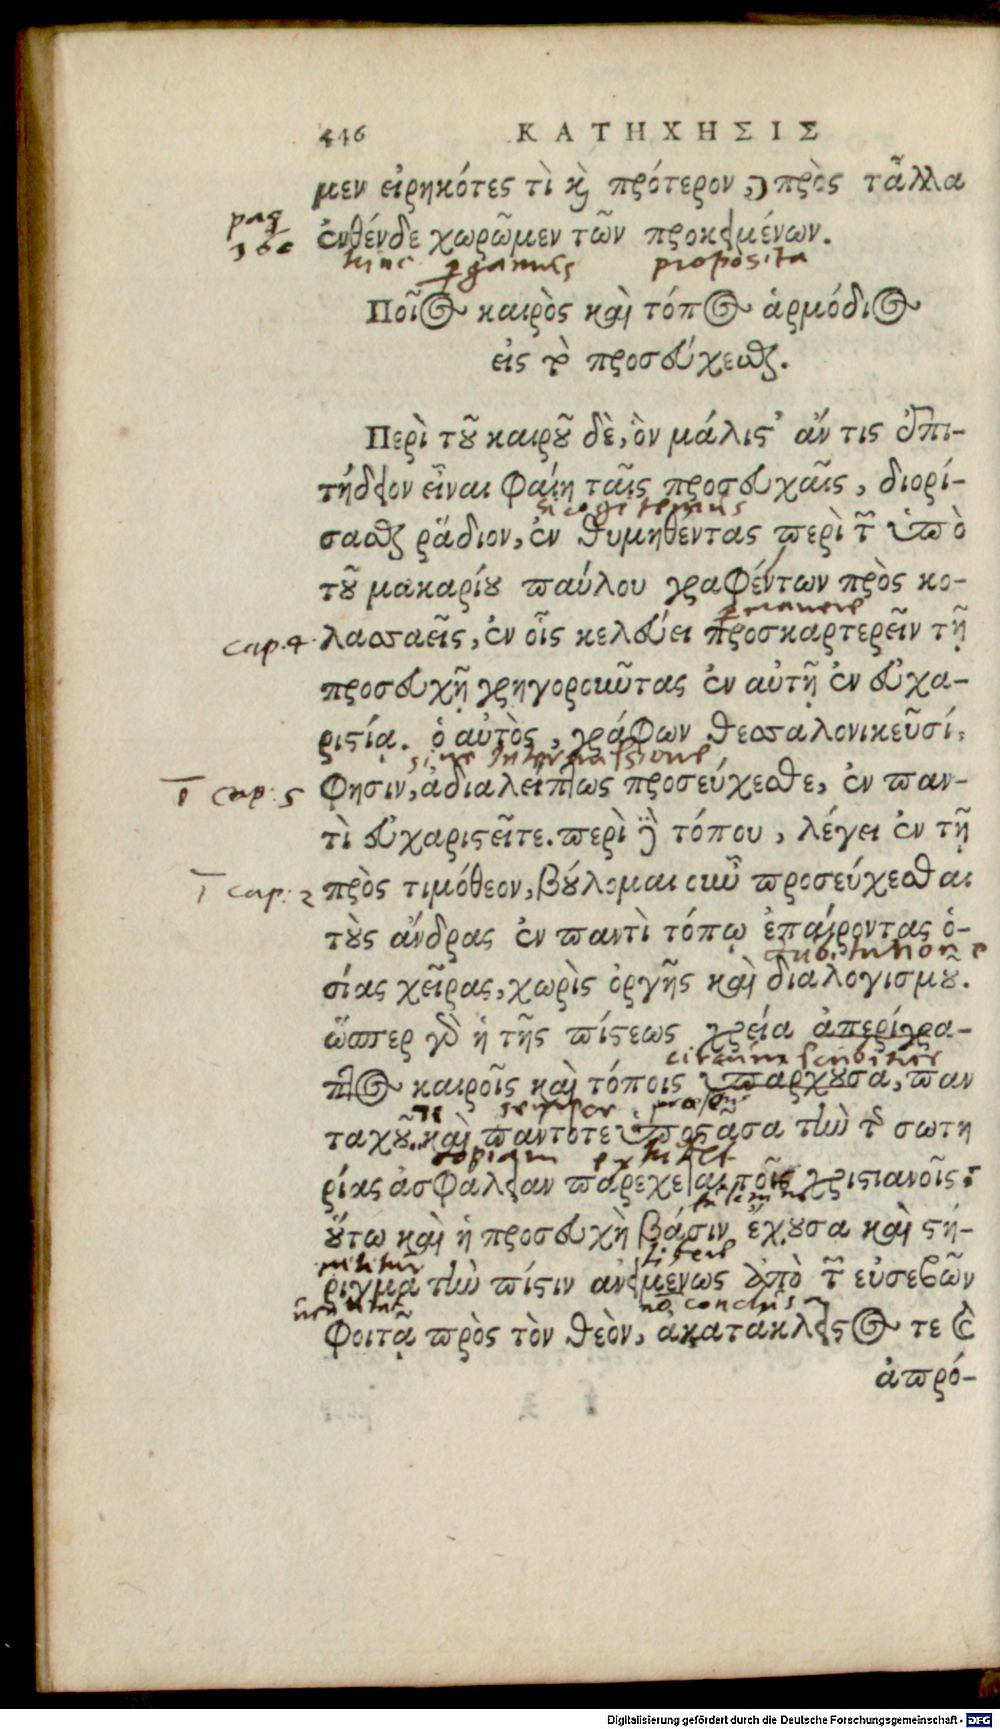 446 ΚΑΤΗΧΗΣΙΣ
μεν εἰρηκότες τὶ καὶ πρότερον, πρὸς τἆλλα
pag
ἐνθένδε χωρῶμεν τῶν προκειμένων.
hinc pergamus proposita
Ποῖος καιρὸς καὶ τόπος ἁρμόδιος
εἰς τὸ προσεύχεσθαι.
Περὶ τοῦ καιροῦ δὲ, ὃν μάλιστ' ἄν τις ἐπι-
τήδειον εἶναι φαίη ταῖς προσευχαῖς, διορί-
si cogitemus
σασθαι ῥᾴδιον, ἐν θυμηθέντας περὶ τῶν ὑπὸ
τοῦ μακαρίου παύλου γραφέντων πρὸς κο-
cap. 4. λασσαεῖς, ἐν οἷς κελεύει προσκαρτερεῖν τῇ
προσευχῇ γρηγοροῦντας ἐν αὐτῇ ἐν εὐχα-
ριστίᾳ. ὁ αὐτὸς, γράφων θεσσαλονικεῦσί,
sine intermissione
1 cap. 5 φησιν, ἀδιαλείπτως προσεύχεσθε, ἐν παν-
τὶ εὐχαριστεῖτε. περὶ δὲ τόπου, λέγει ἐν τῇ
1 cap. 2 πρὸς τιμόθεον, βούλομαι οὖν προσεύχεσθαι
τοὺς ἄνδρας ἐν παντὶ τόπῳ ἐπαίροντας ὁ-
σίας χεῖρας, χωρὶς ὀργῆς καὶ διαλογισμοῦ.
ὥσπερ γὰρ ἡ τῆς πίστεως χρεία ἀπερίγρα-
πτος καιροῖς καὶ τόποις ὑπάρχουσα, παν
semper
ταχοῦ καὶ πάντοτε ὑποστᾶσα τὴν τῆς σωτη
copiam
ρίας ἀσφάλειαν παρέχεται τοῖς χριστιανοῖς:
οὕτω καὶ ἡ προσευχὴ βάσιν ἔχουσα καὶ στή-
ριγμα τὴν πίστιν ἀνειμένως ἀπὸ τῶν εὐσεβῶν
φοιτᾷ πρὸς τὸν θεὸν, ἀκατάκλειστος τε καὶ
ἀπρό-
Digitalisierung gefördert durch die Deutsche Forschungsgemeinschaft - DFG